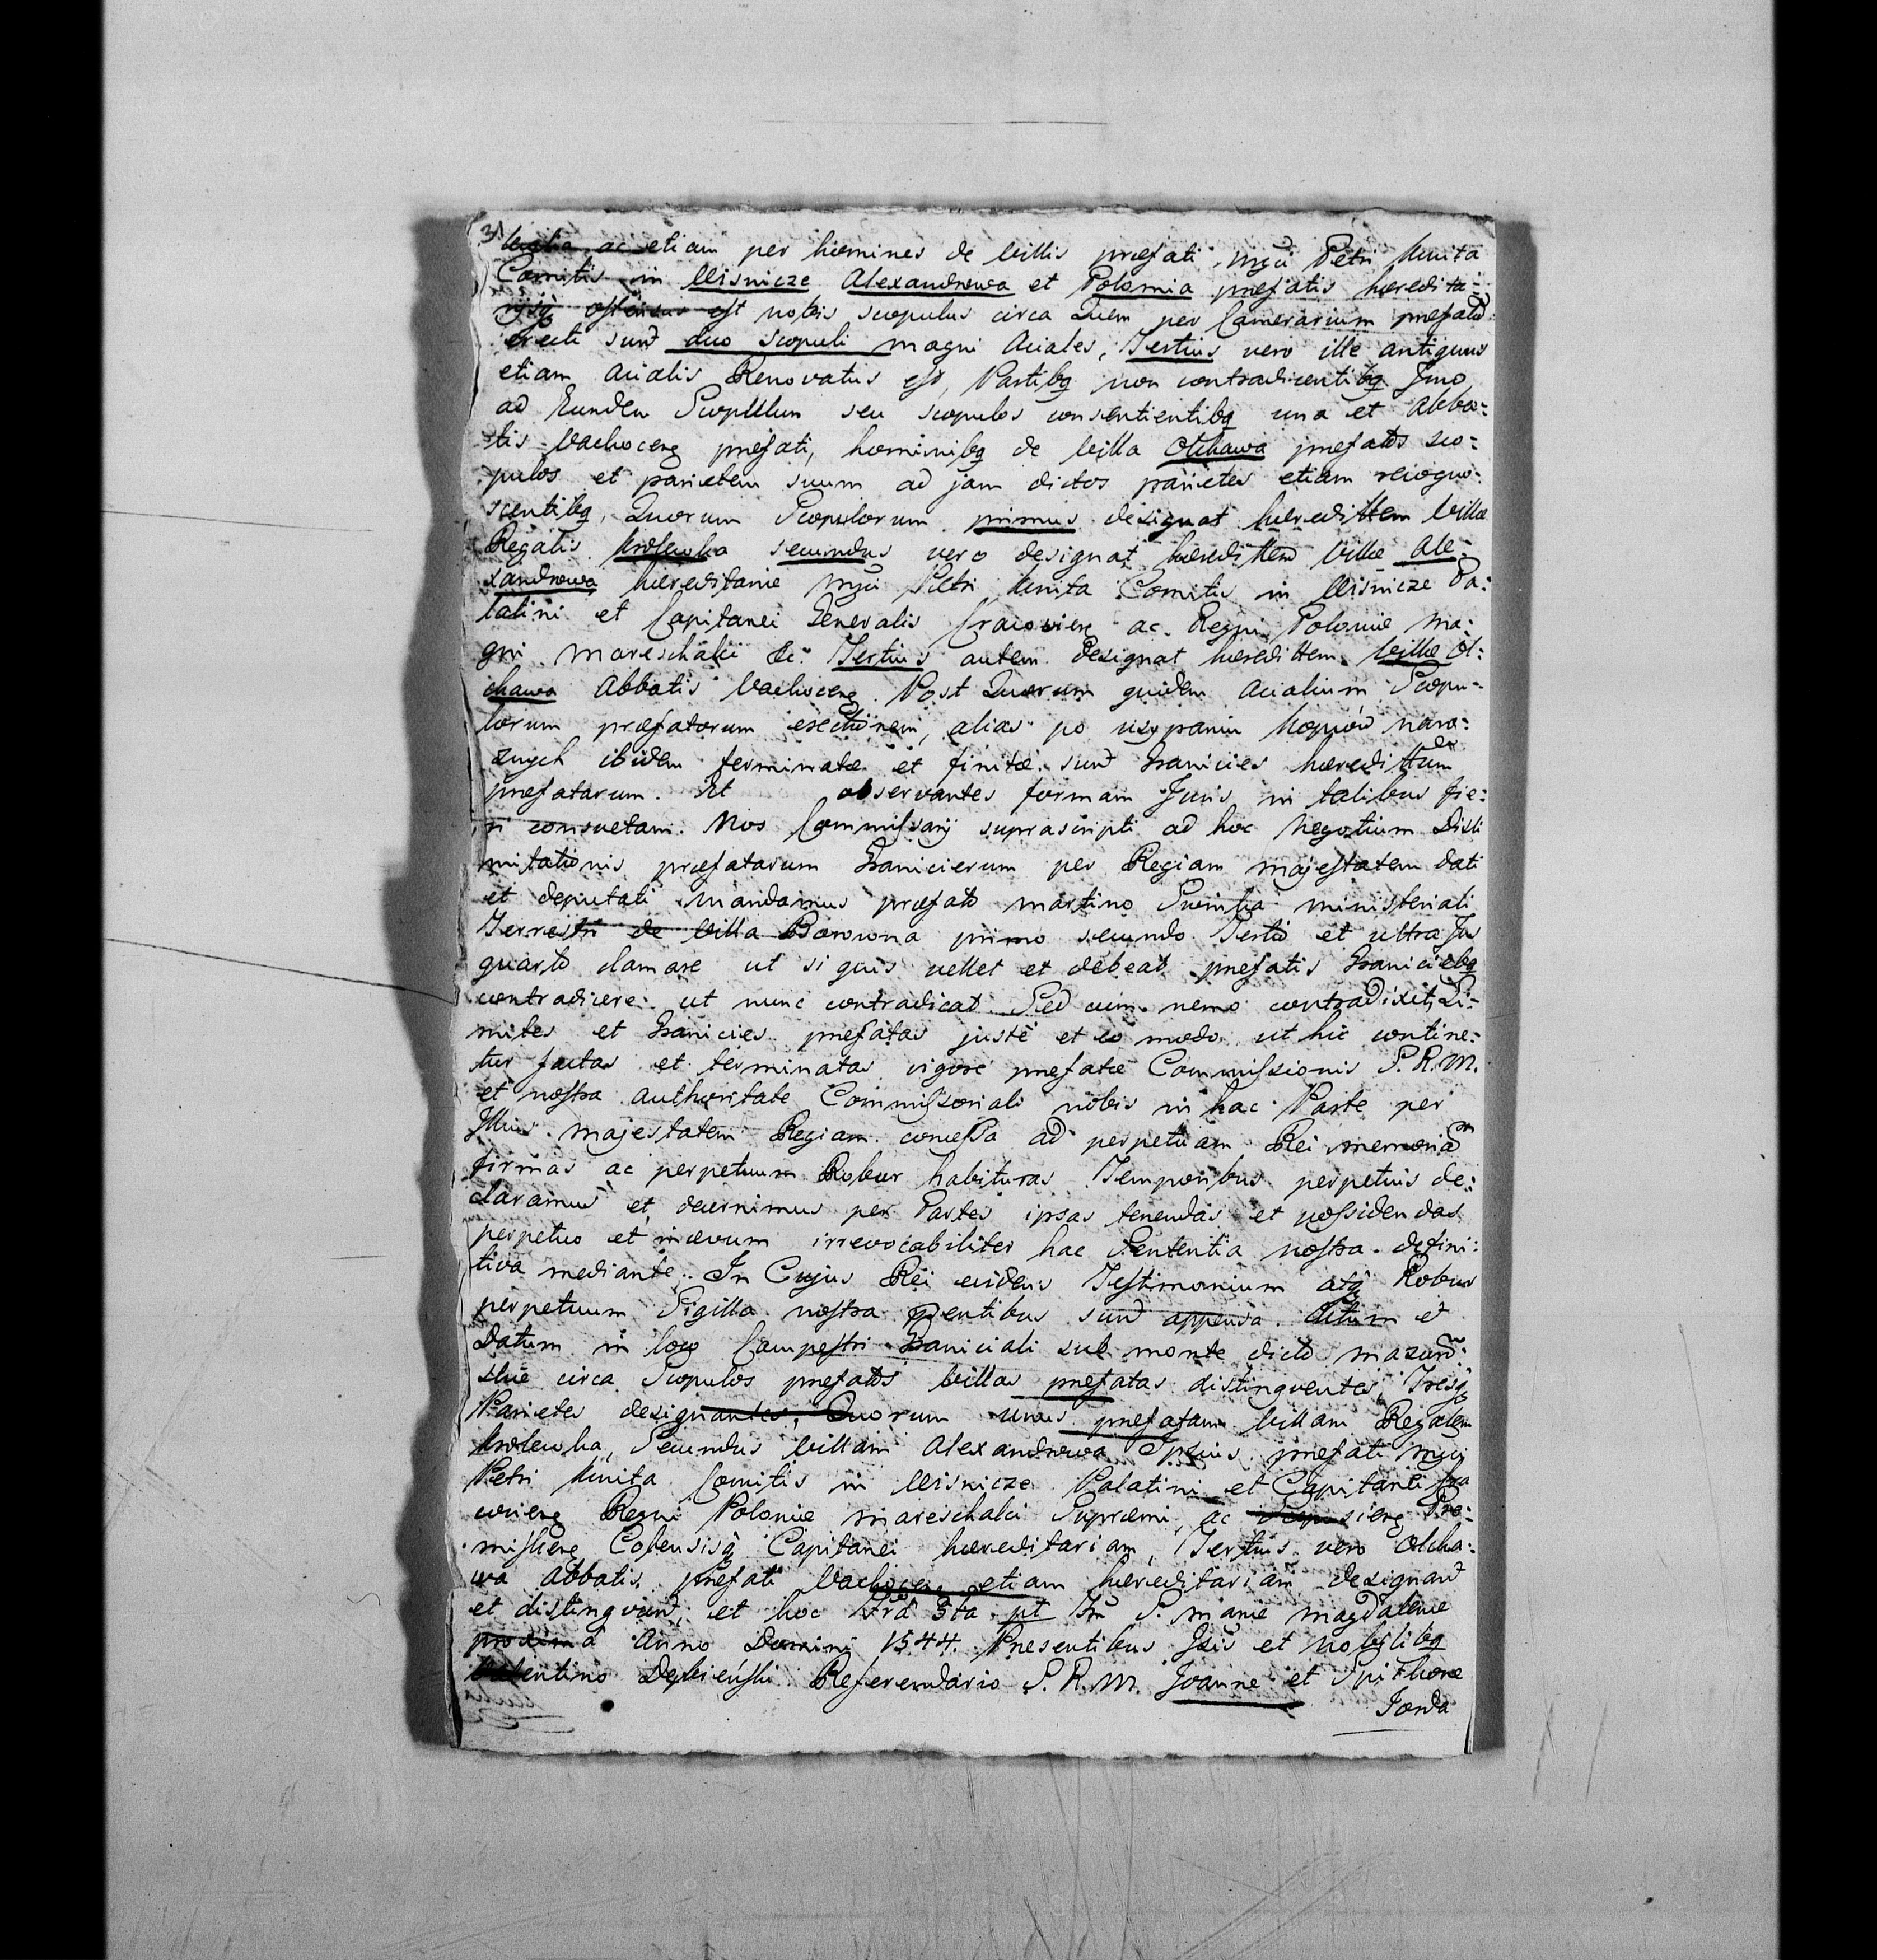 31
lewska ac etiam per homines de villis præfati Mgci Petri Kmita
Comitis in Wisnicze Alexandrowa et Polomia præfatis heredita-
rijsq ostensus est nobis scopulus circa Quem per Camerarium præfatū
erecti sunt duo Scopuli magni Aciales, Tertius vero ille antiquus
etiam Acialis Renovatus est, Partibq non contradicentibq Imo
ad Eundem Scopulum seu scopulos consentientibq una et Abba:
tis Vachocens præfati, hominibq de Villa Olchawa præfatos sco:
pulos et parietem suum ad jam dictos parietes etiam recogno:
scentibq, Quorum Scopulorum primus designat heredittem Villæ
Regalis Krolewka secundus vero designat heredittem Villæ Ale:
xandrowa hereditariæ Mgci Petri Kmita Comitis in Wisnicze Pa:
latini et Capitanei Generalis Cracoviens ac Regni Poloniæ Ma:
gni Mareschalci &c. Tertius autem designat heredittem Villæ Ol:
chawa Abbatis Vachocens. Post Quorum quidem Acialium Scopu-
lorum præfatorum erectionem, alias po usypaniu kopców naro:
znych ibidem terminatæ et finitæ sunt Granicies heredittum
præfatarum. Et observantes formam Juris in talibus fie:
ri consuetam. Nos Commissarij suprascripti ad hoc Negotium Disli
mitationis præfatarum Granicierum per Regiam Majestatem dati
et deputati mandamus præfato Martino Swinka ministeriali
Terrestri de Villa Borowna primo secundo Tertio et ultra Jus
quarto clamare ut si quis vellet et debeat præfatis Graniciebq
contradicere: ut nunc contradicat. Sed cum nemo contradixit, Li-
mites et Granicies præfatas justè et eo modo ut hic contine:
tur factas et terminatas vigore præfatæ Commissionis S. R. M.
et nostra authoritate Commissoriali nobis in hac Parte per
Illius Majestatem Regiam concessa ad perpetuam Rei memoriam
firmas ac perpetuum Robur habituras Temporibus perpetuis de:
claramus et decernimus per Partes ipsas tenendas et possidendas
perpetuo et in ævum irrevocabiliter hac Sententia nostra defini:
tiva mediante. In Cujus Rei evidens Testimonium atq Robur
perpetuum Sigilla nostra pntibus sunt appensa. Actum et
Datum in loco Campestri Graniciali sub monte dicto
circa Scopulos præfatos Villas præfatas distinguentes, Tresq
Parietes designantes, Quorum unus præfatam Villam Regalem
Krolewka, Secundus Villam Alexandrowa Ipsius præfati Mgci
Petri Kmita Comitis in Wisnicze Palatini et Capitanei Cra
coviens Regni Poloniæ Mareschalci Supræmi, ac Scepusiens Pre:
misliens Colensisq Capitanei hereditariam, Tertius vero Olcha:
wa Abbatis præfati Vachocens etiam hereditariam designant
et distinguunt, et hoc Fria 3tia pt Fm S. Mariæ Magdalenæ
proxima Anno Domini 1544. Presentibus Gsis et Nobilibq
Valentino Dębieński Referendario S. R. M. Joanne et Spithone
Jorda